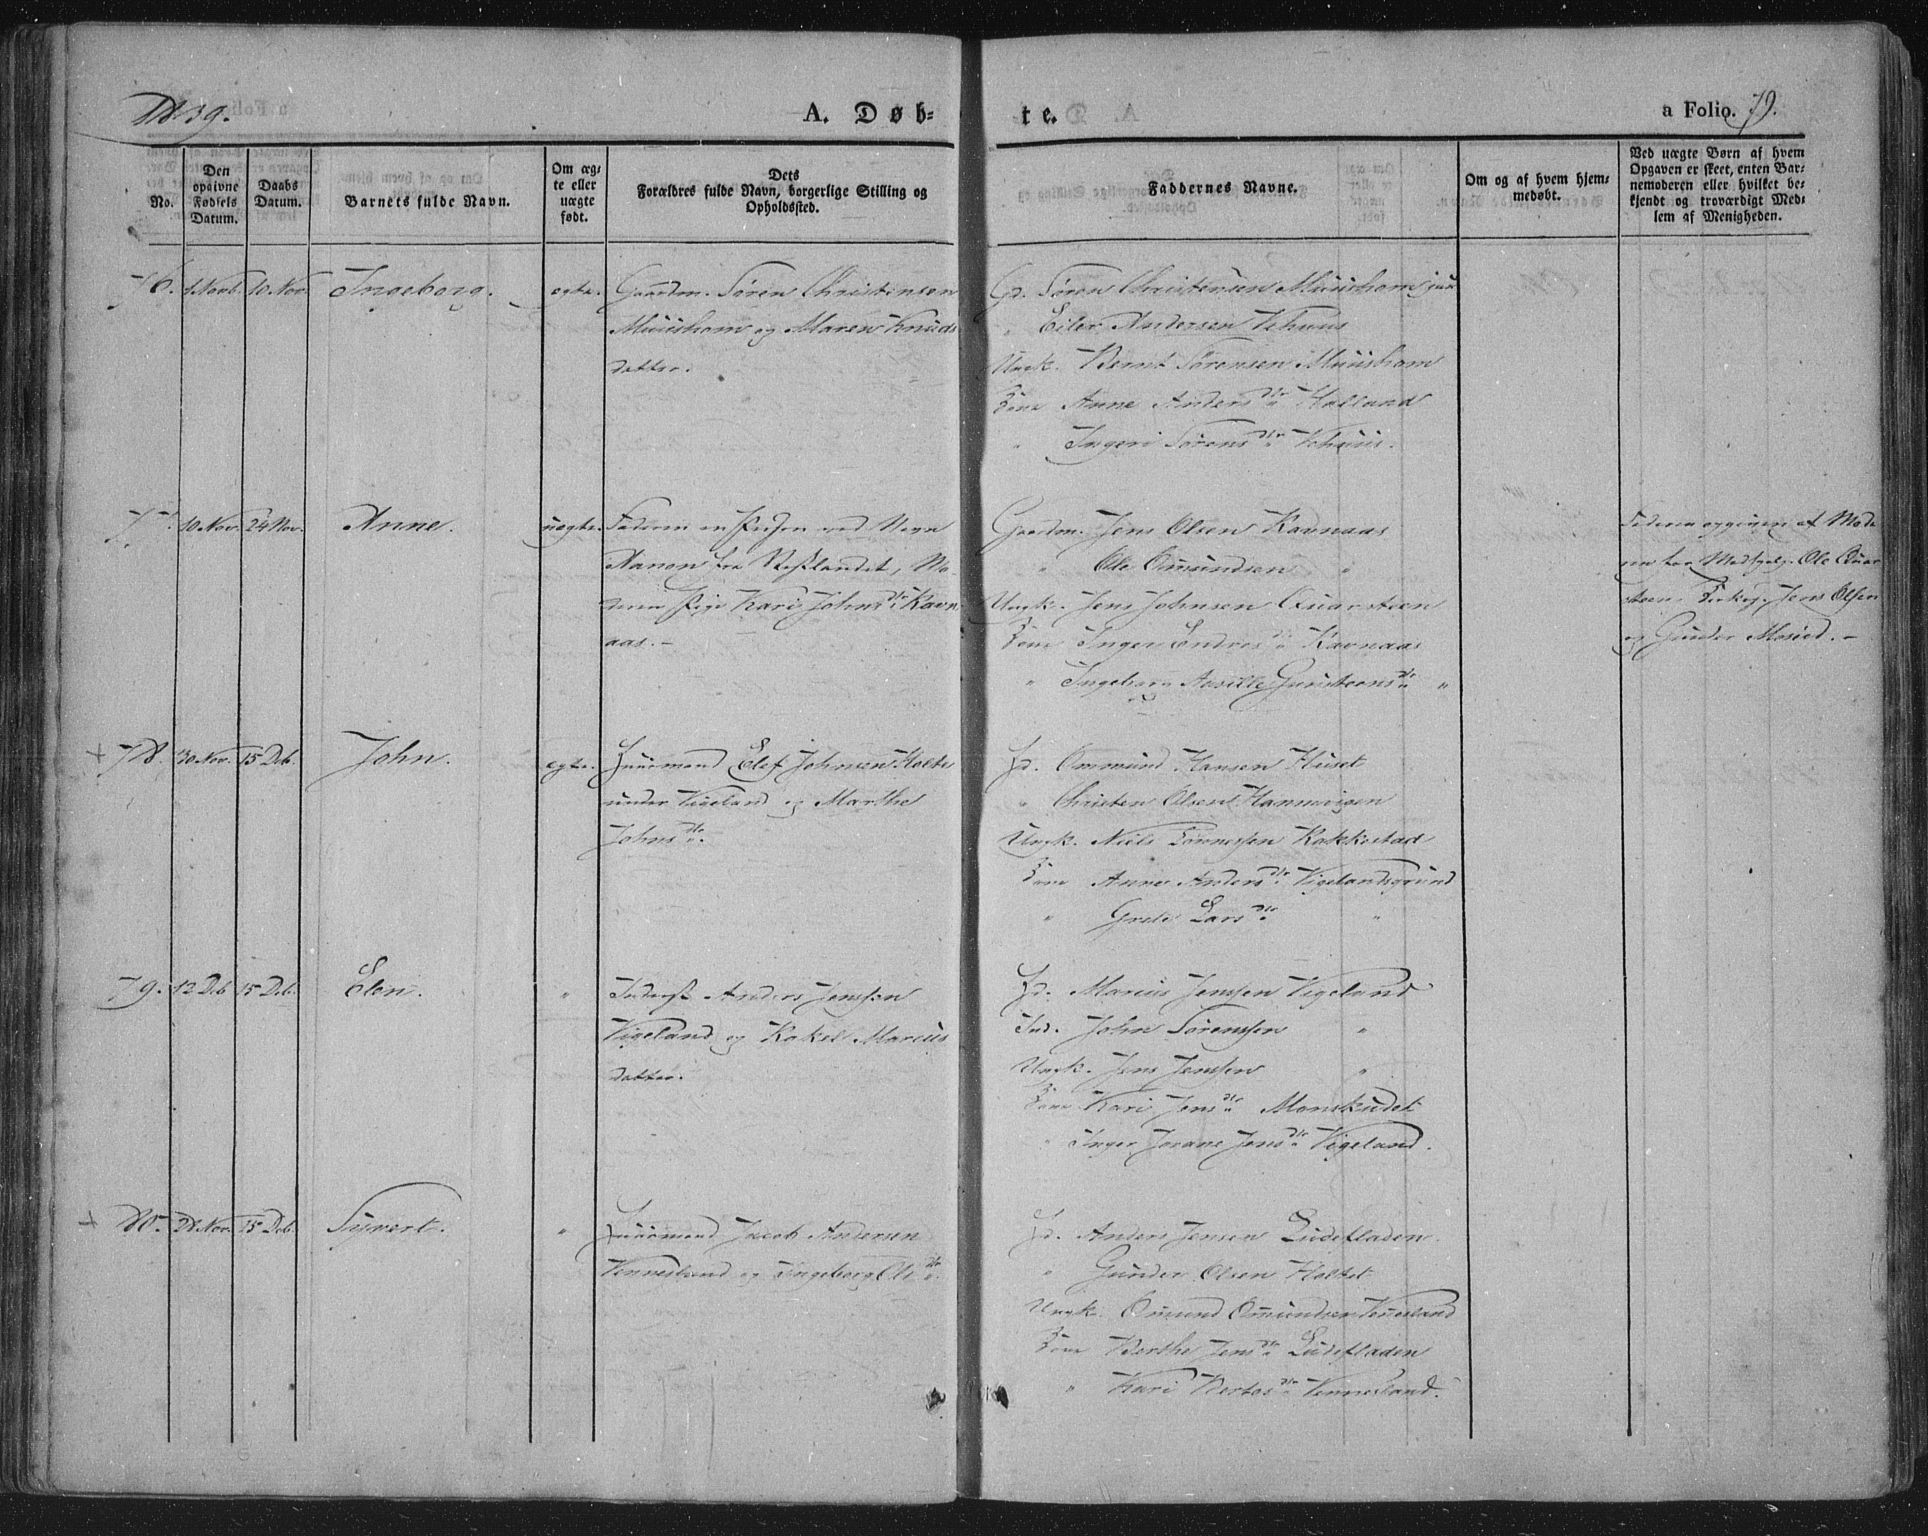 1839.
A. Døb-
te.
a Folio. 79.
No.
Den opgivne Fødsels Datum.
Daabs Datum.
Barnets fulde Navn.
Om æg-
te eller
uægte
født.
Dets
Forældres fulde Navn, borgerlige Stilling og
Opholdssted.
Faddernes Navne.
Om og af hvem hjem-
medøbt.
Ved uægte Børn af hvem
Opgaven er skeet, enten Bar-
nemoderen eller hvilket be-
kjendt og troværdigt Med-
lem af Menigheden.
76. 1 Novb. 10 Nov. Ingeborg. ægte. Gaardm. Søren Christensen
Muushom og Maren Knuds
datter.
Gd. Søren Christensen Muushom jun
" Eiler Andersen Vehuus
Ungk. Bernt Sørensen Muushom
Kone Anne Andersdtr Holland
" Ingeri Sørensdtr Vehuus.
77. 10 Nov. 24 Nov. Anne. uægte. Faderen en Person ved Navn
Aanon fra Vestlandet, Mo
deren Pige Kari Johnsdtr Ravn
aas. –
Gaardm. Jens Olsen Ravnaas
" Ole Omundsen "
Ungk. Jens Johnsen Quarsteen
Kone Inger Endresdtr Ravnaas
" Ingeborg Aasille Gunsteensdtr "
Faderen opgiven af Mode
ren for Medhjelp. Ole Quar
steen. Jens Olsen
og Gunder Moseid. –
+ 78. 30 Nov. 15 Deb. John. ægte. Huusmand Elef Johnsen Holte
under Vigeland og Marthe
Johnsdtr.
Hd. Ommund Hansen Huset
" Christen Olsen Hammeigen
Ungk. Niels Tønnessen Kokkestad
Kone Anne Andersdtr Vigelandsgrund
" Grete Larsdtr "
79. 12 Deb 15 Deb. Elen. " Inderst Anders Jenssen
Vigeland og Rakel Marcus
datter.
Hd. Marcus Jenssen Vigeland
Ind. John Sørenssen "
Ungk. Jens Jenssen "
Kone Kari Jensdtr Monskudet
" Inger Jorane Jensdtr Vigeland.
+ 80. 28 Nov. 15 Deb. Syvert. " Huusmand Jacob Andersen
Vennesland og Ingeborg Olsdtr.
Hd. Anders Jensen Ludefladen.
" Gunder Olsen Holtet
Ungk. Omund Omundsen Vennesland
Kone Berthe Jensdtr Ludefladen
" Kari Bertosdtr Vennesland.